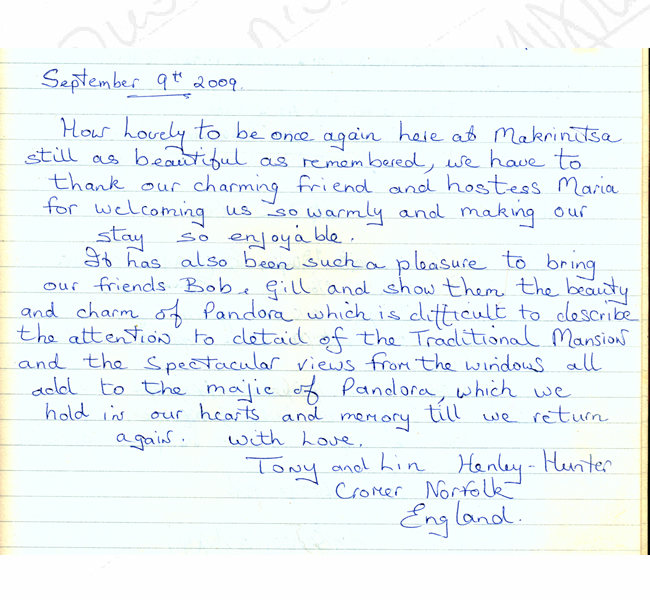 September 9th 2009.
How Lovely to be once again here at Makrinitsa
still as beautiful as remembered, we have to
thank our charming friend and hostess Maria
for welcoming us so warmly and making our
stay so enjoyable.
It has also been such a pleasure to bring
our friends Bob & Gill and show them the beauty
and charm of Pandora which is difficult to describe
the attention to detail of the Traditional Mansion
and the Spectacular views from the windows all
add to the majic of Pandora, which we
hold in our hearts and memory till we return
again. with Love.
Tony and Lin Henley-Hunter
Cromer Norfolk
England.